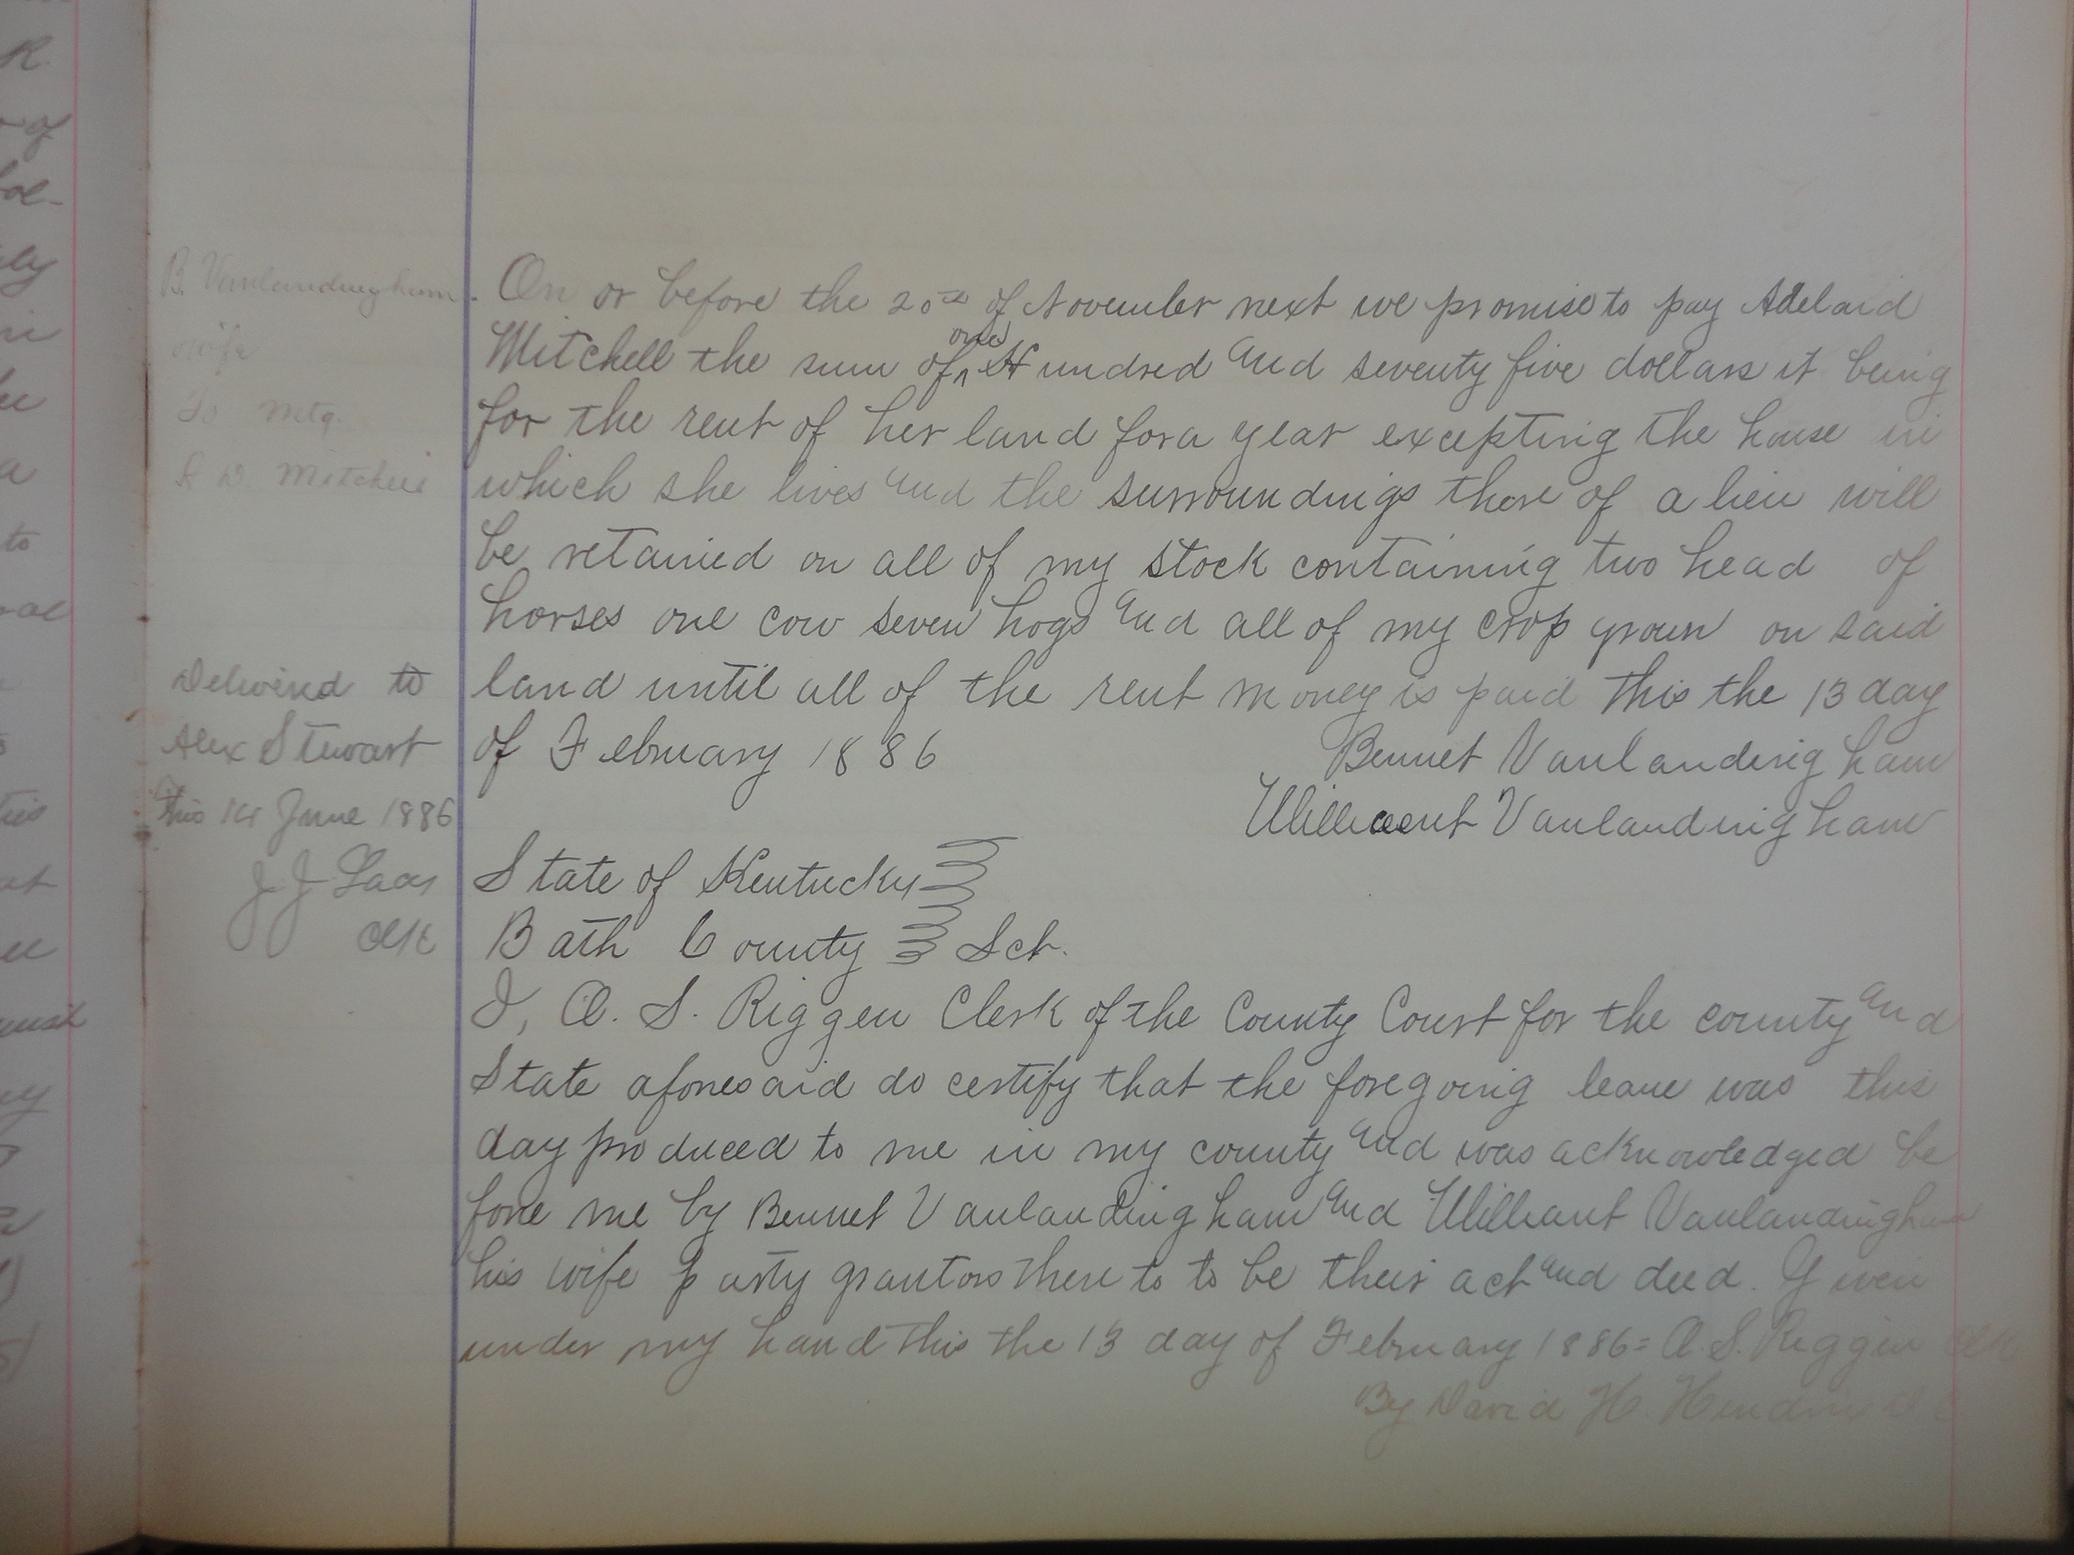 B. Vanlandingham
wife
To mtg.
Mitchell
Delivered to
Alex Stewart
this June 1886
J J
Clk
On or before the 20th of November next we promise to pay Adelaid
Mitchell the sum of one Hundred and seventy five dollars it being
for the rent of her land for a year excepting the house in
which she lives and the surroundings there of a lien will
be retained on all of my stock containing two head of
horses one cow seven hogs and all of my crop grown on said
land until all of the rent money is paid This the 13 day
of February 1886
Bennet Vanlandingham
Vanlandingham
State of Kentucky
Bath County Sct.
I, A. S. Riggen Clerk of the County Court for the county and
State aforesaid do certify that the foregoing was this
day produced to me in my county and was acknowledged be
fore me by Bennet Vanlandingham and Vanlandingham
his wife party grantors there to to be their act and deed. Given
under my hand this the 13 day of February 1886 = A. S. Riggen Clk
By David H.